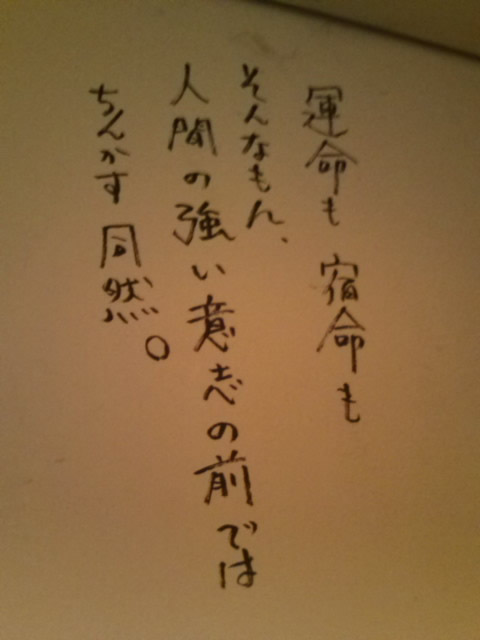 運命も 宿命も
そんなもん、
人間の強い意志の前では
ちんかす同然。